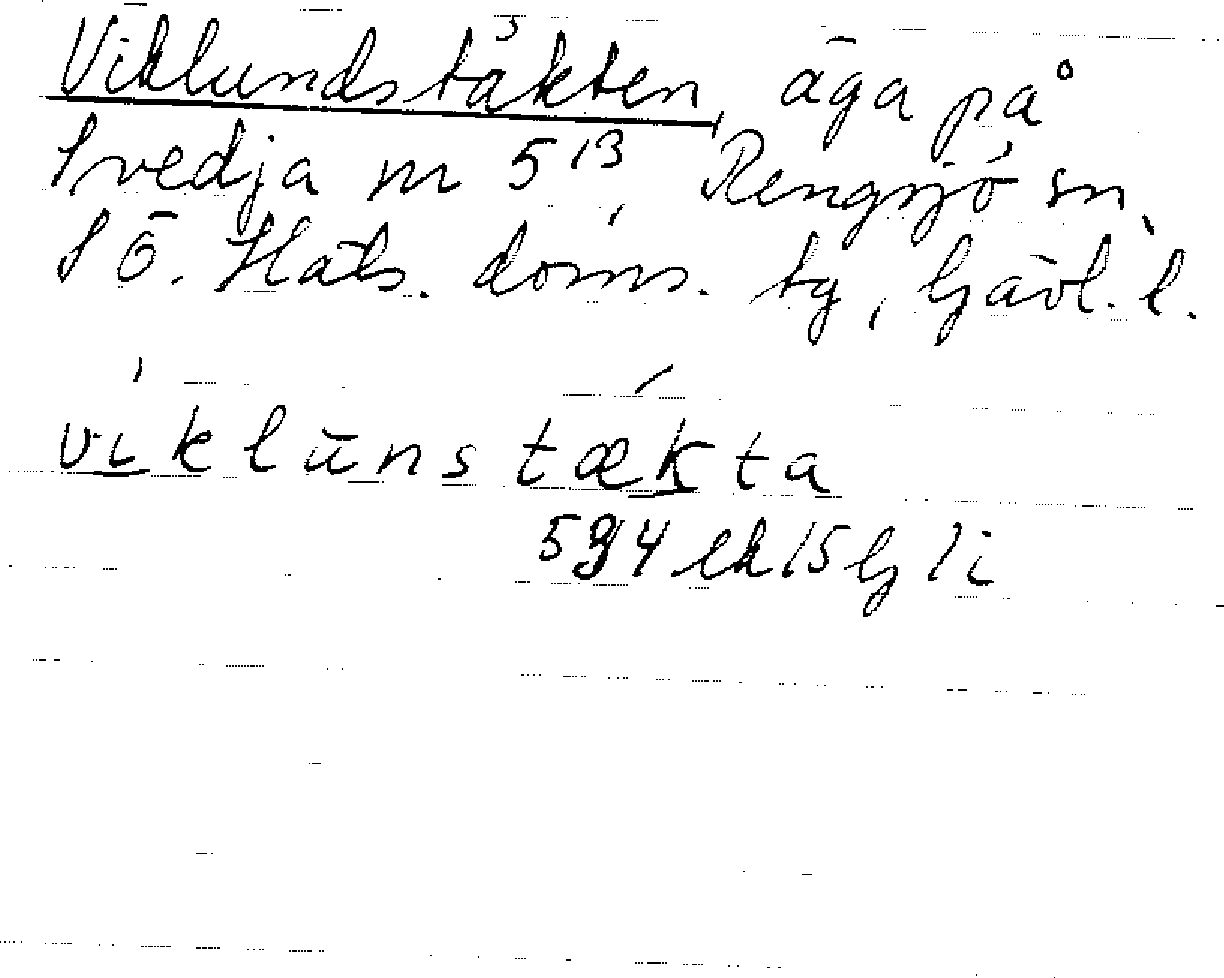 Viklundstäkten, äga på
Svedja nr 5¹³, Rengsjö sn,
SÖ. Häls. doms. tg, Gävl. l.
viklūns tækta
594 15 li